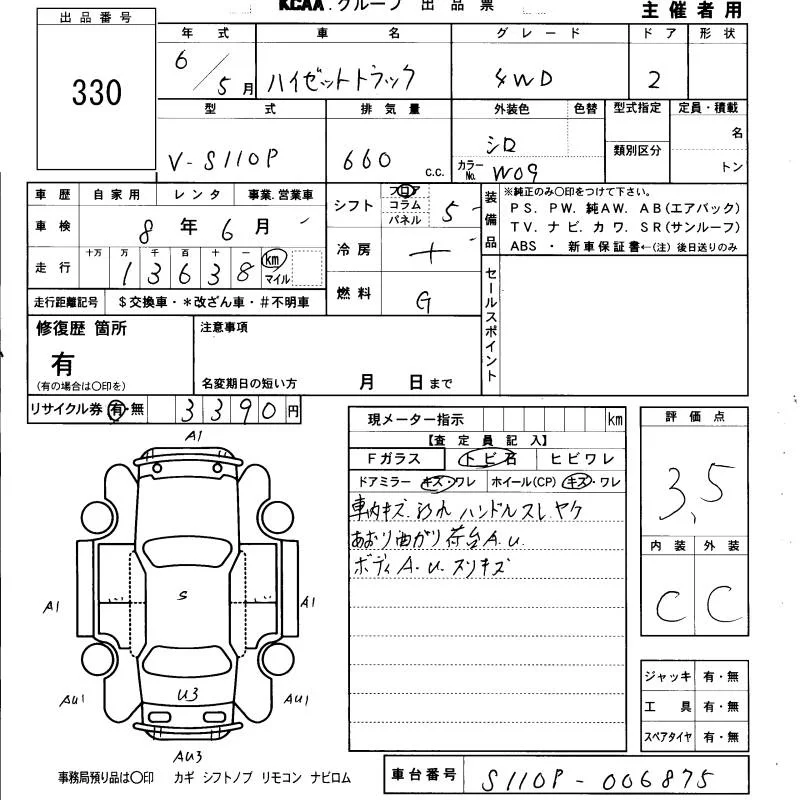 KCAA.グループ 出品票
主催者用
出品番号
330
年式 車名 グレード ドア 形状
6/5月 ハイゼットトラック 4WD 2
型式 排気量 外装色 色替 型式指定 定員・積載
V-S110P 660 C.C. シロ カラーNo. W09 類別区分 名 トン
車歴 自家用 レンタ 事業.営業車
車検 8年6月
走行 十万 万 千 百 十 一 km マイル
1 3 6 3 8
走行距離記号 $交換車・*改ざん車・#不明車
シフト フロア コラム パネル 5
冷房
燃料 G
装備品
※純正のみ〇印をつけて下さい。
PS. PW. 純AW. AB(エアバック)
TV. ナビ. カワ. SR(サンルーフ)
ABS ・ 新車保証書←(注) 後日送りのみ
セールスポイント
修復歴 箇所
有
(有の場合は〇印を)
注意事項
名変期日の短い方 月 日まで
リサイクル券 有・無 3 3 9 0 円
現メーター指示 km
【査定員記入】
Fガラス トビ石 ヒビワレ
ドアミラー キズ・ワレ ホイール(CP) キズ・ワレ
車内キズ.ヨゴレ ハンドルスレ.ヤケ
あおり曲がり荷台A.U.
ボディA.U.スリキズ
評価点
3.5
内装 外装
C C
A1
S
A1
A1
AU1
U3
AU1
AU3
ジャッキ 有・無
工具 有・無
スペアタイヤ 有・無
事務局預り品は〇印 カギ シフトノブ リモコン ナビロム
車台番号 S110P-006875